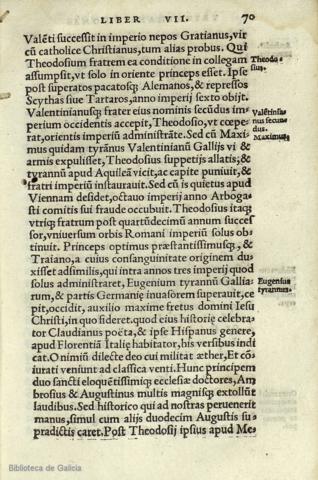 LIBER VII. 70
Valẽti successit in imperio nepos Gratianus, vir
cũ catholice Christianus, tum alias probus. Qui
Theodosium fratrem ea conditione in collegam
Theodo-
sius.
assumpsit, vt solo in oriente princeps esset. Ipse
post superatos pacatosq; Alemanos, & repressos
Scythas siue Tartaros, anno imperij sexto obijt.
Valentinianusq; frater eius nominis secũdus im-
Valẽtinia-
nus secun-
dus.
perium occidentis accepit, Theodosio, vt cœpe-
rat, orientis imperiũ administrãte. Sed cũ Maxi-
Maximus
mus quidam tyrãnus Valentinianũ Gallijs vi &
armis expulisset, Theodosius suppetijs allatis; &
tyrannũ apud Aquileã vicit, ac capite puniuit, &
fratri imperiũ instaurauit. Sed cũ is quietus apud
Viennam desidet, octauo imperij anno Arboga-
sti comitis sui fraude occubuit. Theodosius itaq;
vtriq; fratrum post quartũdecimũ annum succes
sor, vniuersum orbis Romani imperiũ solus ob-
tinuit. Princeps optimus præstantissimusq;, &
Traiano, a cuius consanguinitate originem du-
xisset adsimilis, qui intra annos tres imperij quod
solus administraret, Eugenium tyrannũ Gallia-
Eugenius
tyrannus.
rum, & partis Germanię inuasorem superauit, ce
pit, occidit, auxilio maxime fretus domini Iesu
Christi, in quo fideret. quod eius historię celebra-
tor Claudianus poëta, & ipse Hispanus genere,
apud Florentiã Italię habitator, his versibus indi
cat. O nimiũ dilecte deo cui militat æther, Et cõ-
iurati veniunt ad classica venti. Hunc principem
duo sancti eloquẽtissimiq; ecclesiæ doctores, Am
brosius & Augustinus multis magnisq; extollũt
laudibus. Sed historico qui ad nostras peruenerit
manus, simul cum alijs duodecim Augustis su-
prædictis caret. Post Theodosij ipsius apud Me-
Biblioteca de Galicia